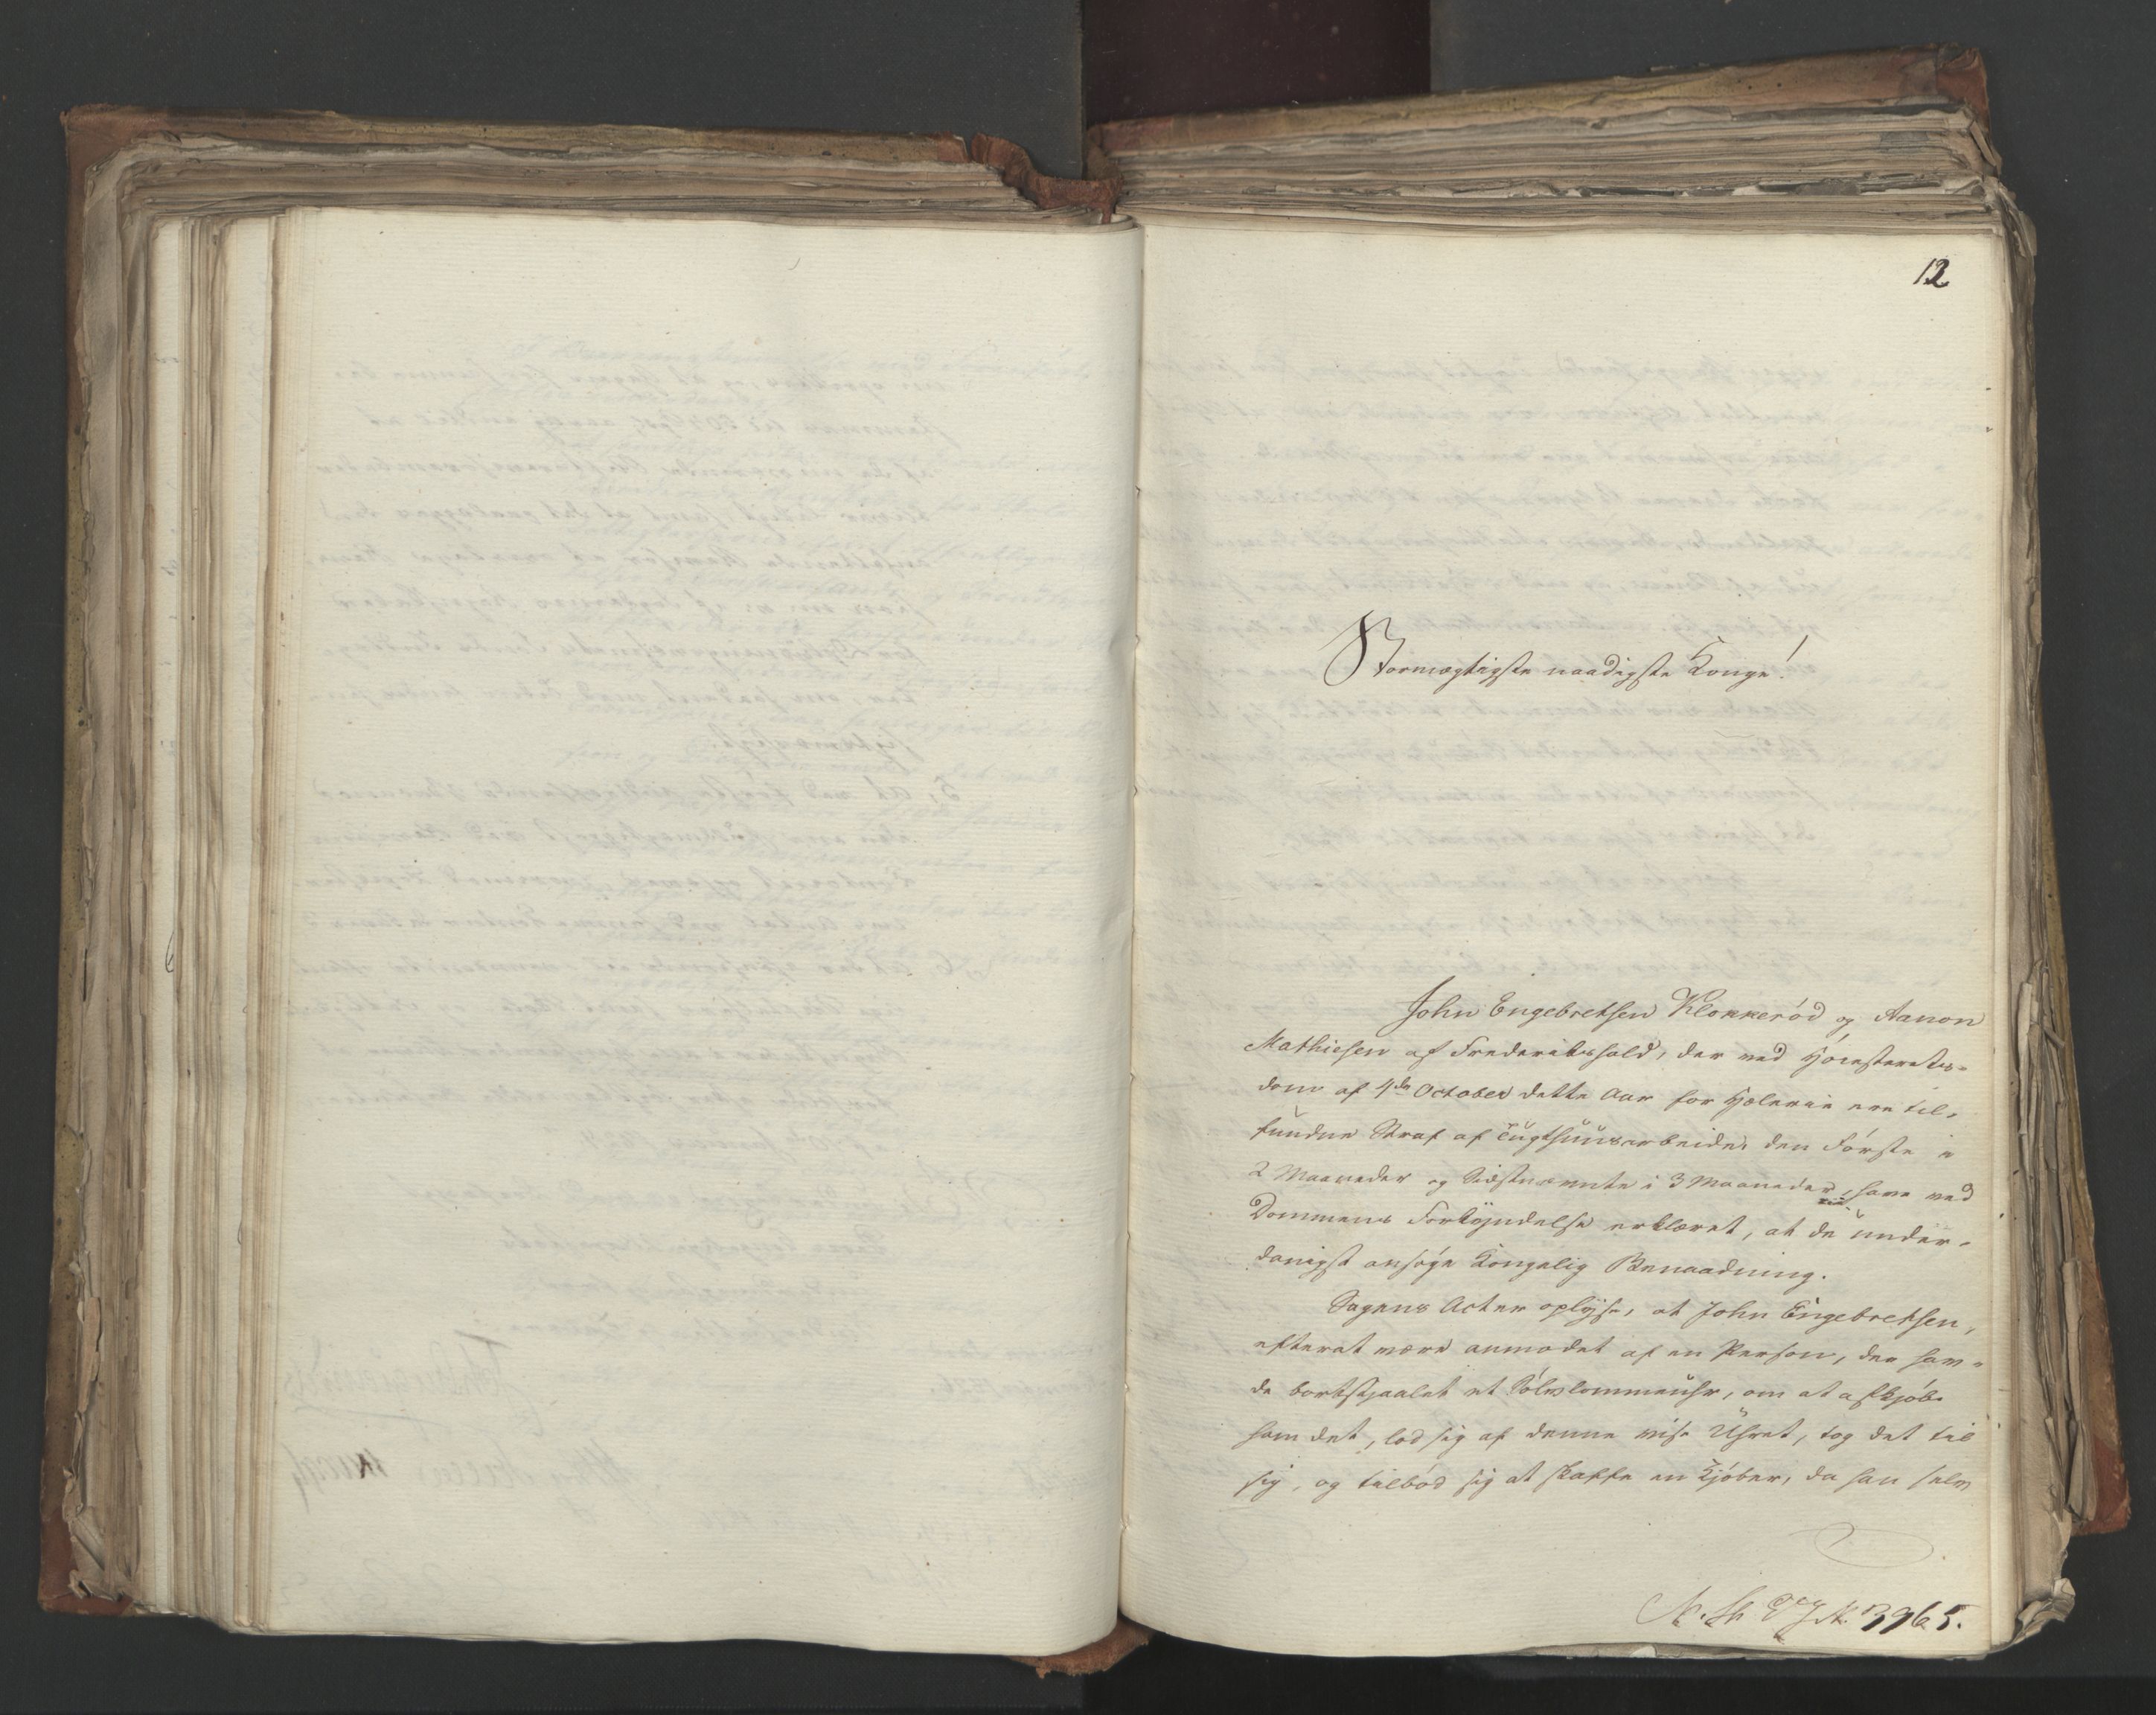 12
Stormægtigste naadigste Konge!
John Engebretsen Klokkeröd og Aanon
Mathiesen af Frederikshald, der ved Höiesterets-
dom af 4de October dette Aar for Hæleri ere til-
fundne Straf af Tugthuusarbeide, den Förste i
2 Maaneder og Sidstnævnte i 3 Maaneder, have ved
Dommens Forkyndelse erklæret, at de under-
danigst ansöge Kongelig Benaadning.
Sagens Acter oplyse, at John Engebretsen,
efterat være anmodet af en Person, der hav-
de bortstjaalet et Sölvlommeuhr, om at afkjöbe
ham det, lod sig af denne vise Uhret, tog det til
sig, og tilböd sig at skaffe en Kjöber, da han selv
3965.